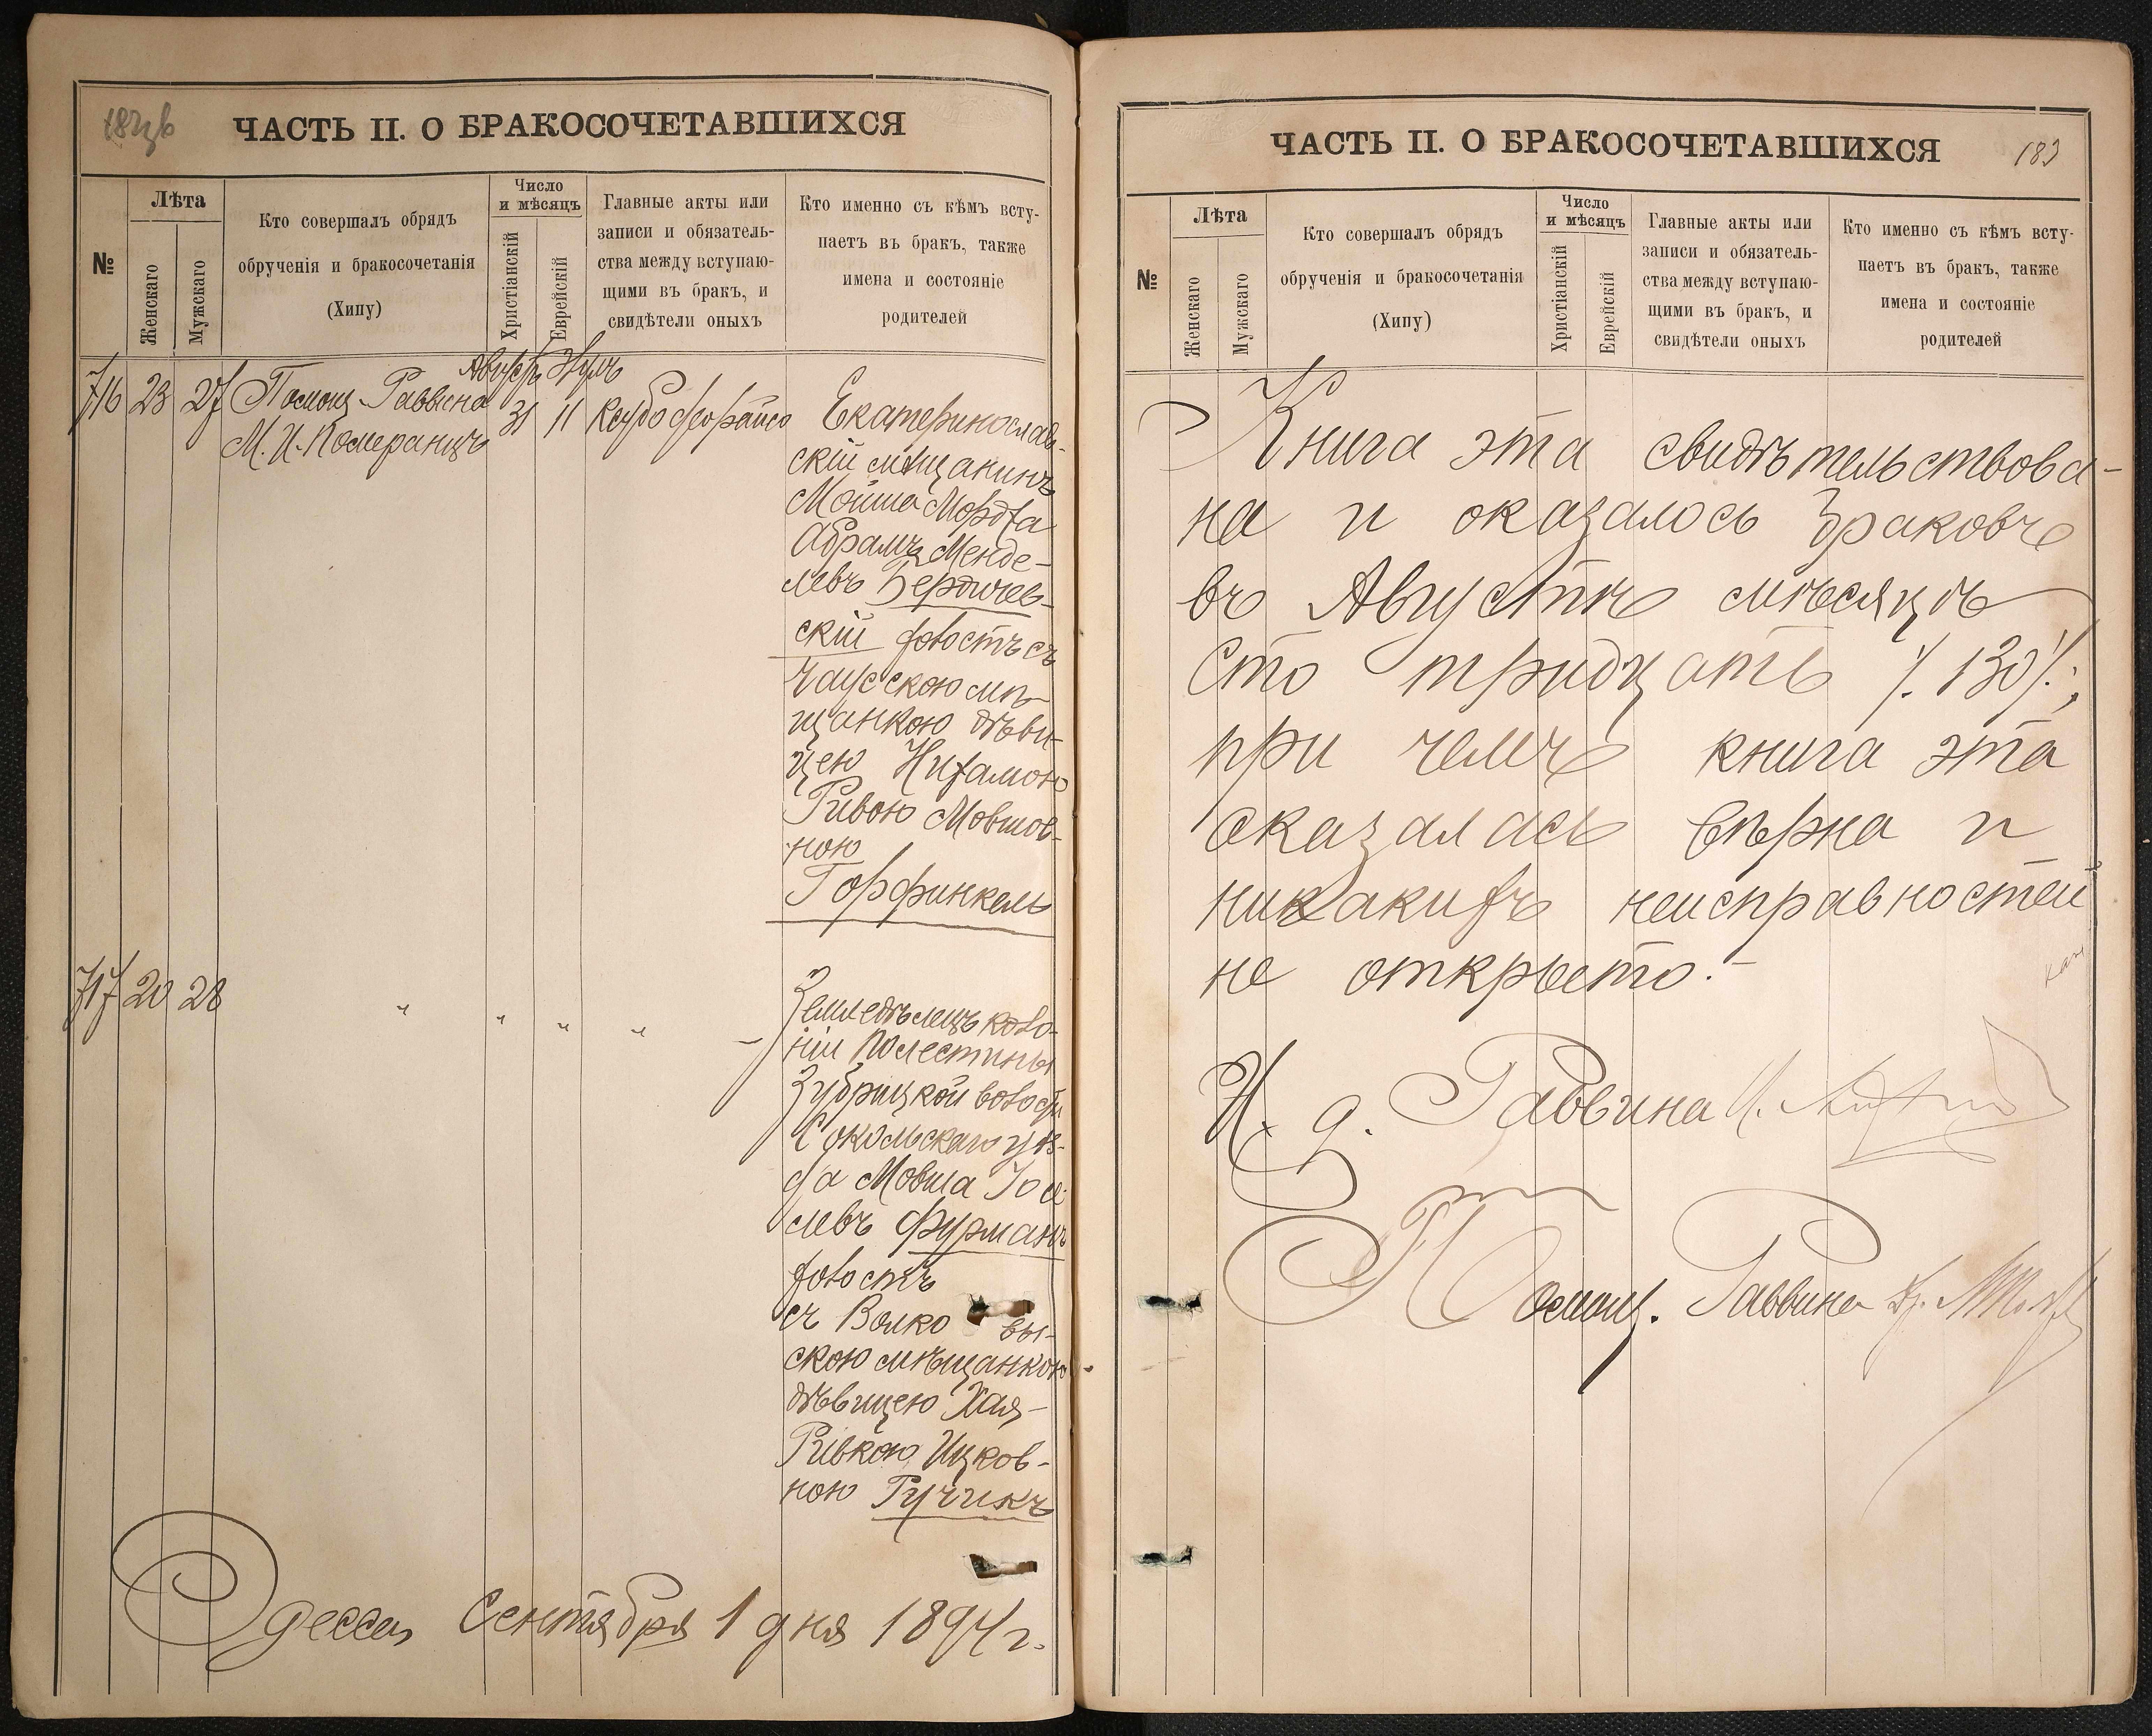 ЧАСТЬ II. О БРАКОСОЧЕТАВШИХСЯ
№
Лѣта
Женскаго
Мужскаго
Кто совершалъ обрядъ
обрученія и бракосочетанія
(Хипу)
Число
и мѣсяцъ
Христіанскій
Еврейскій
Главные акты или
записи и обязатель-
ства между вступаю-
щими въ бракъ, и
свидѣтели оныхъ
Кто именно съ кѣмъ всту-
паетъ въ бракъ, также
имена и состояніе
родителей
716 23 27 Помощ. Раввина
М. И. Померанцъ
Августъ
31 11
Екатеринослав-
скій мѣщанинъ
Мойше Мордха
Абрамъ Менде-
левъ Бердичев-
скій холостъ съ
Чаусскою мѣ-
щанкою дѣви-
цею Нихамою
Ривою Мовшов-
ною
Горфинкель
717 20 28 " " " "
Земледѣлецъ коло-
ніи Полестины
Зубрицкой волости
Сокольскаго уѣз-
да Мовша Іосе-
левъ Фурманъ
холостъ
съ Волковы-
скою мѣщанкою
дѣвицею Хая-
Ривкою Ицков-
ною Гучикъ
Одесса Сентября 1 дня 1894 г.
ЧАСТЬ II. О БРАКОСОЧЕТАВШИХСЯ
183
№
Лѣта
Женскаго
Мужскаго
Кто совершалъ обрядъ
обрученія и бракосочетанія
(Хипу)
Число
и мѣсяцъ
Христіанскій
Еврейскій
Главные акты или
записи и обязатель-
ства между вступаю-
щими въ бракъ, и
свидѣтели оныхъ
Кто именно съ кѣмъ всту-
паетъ въ бракъ, также
имена и состояніе
родителей
Книга эта свидѣтельствова-
на и оказалось браковъ
въ Августѣ мѣсяцѣ
Сто тридцать /. 130 /.;
при чемъ книга эта
оказалась вѣрна и
никакихъ неисправностей
не открыто. -
И. д. Раввина
Помощ. Раввина